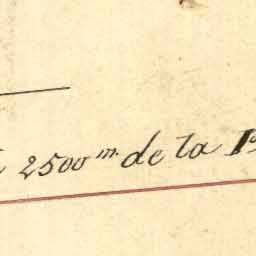 2500 m. de la